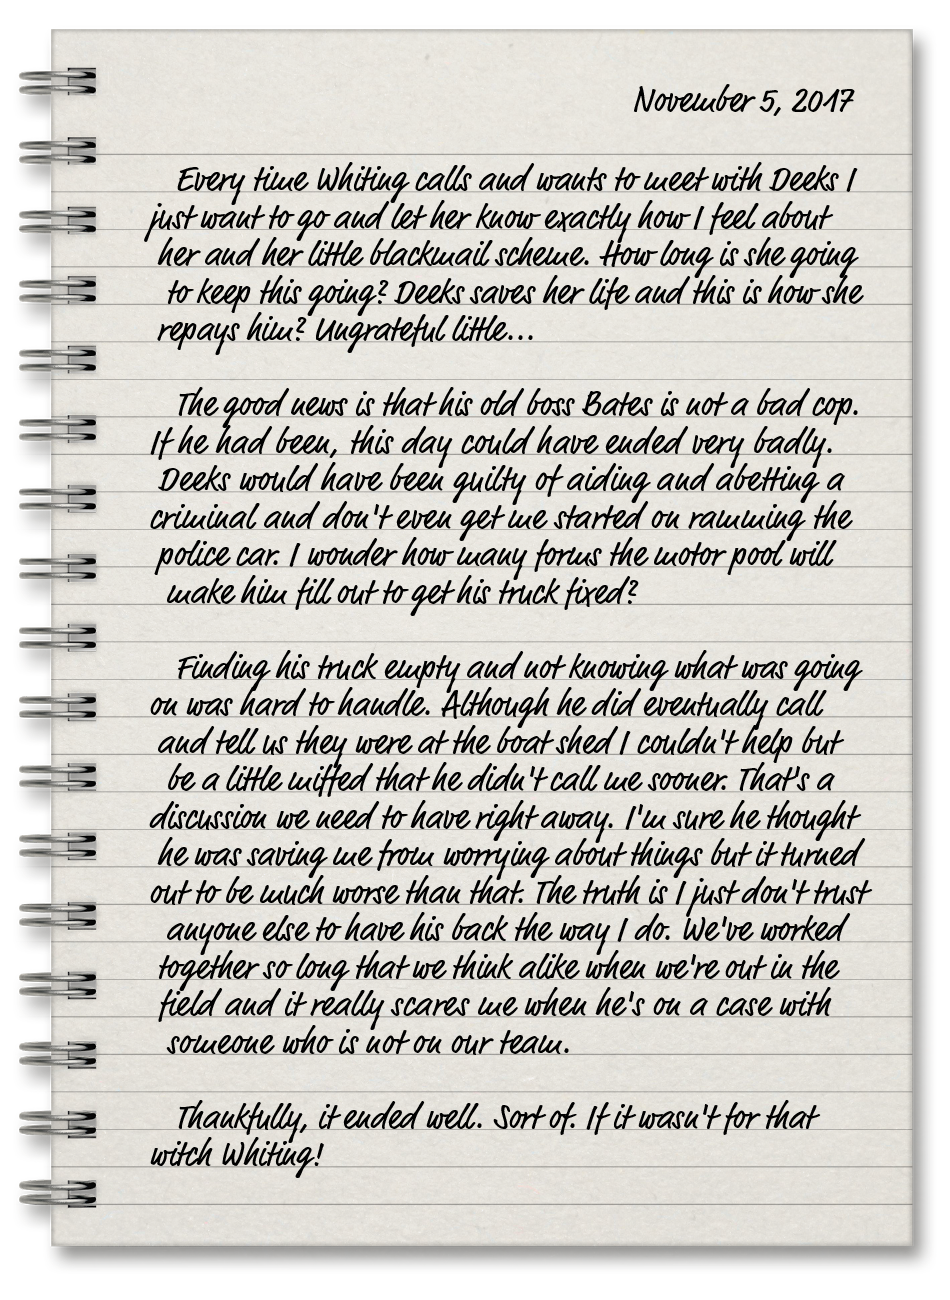 November 5, 2017
Every time Whiting calls and wants to meet with Deeks I
just want to go and let her know exactly how I feel about
her and her little blackmail scheme. How long is she going
to keep this going? Deeks saves her life and this is how she
repays him? Ungrateful little...
The good news is that his old boss Bates is not a bad cop.
If he had been, this day could have ended very badly.
Deeks would have been guilty of aiding and abetting a
criminal and don't even get me started on ramming the
police car. I wonder how many forms the motor pool will
make him fill out to get his truck fixed?
Finding his truck empty and not knowing what was going
on was hard to handle. Although he did eventually call
and tell us they were at the boat shed I couldn't help but
be a little miffed that he didn't call me sooner. That's a
discussion we need to have right away. I'm sure he thought
he was saving me from worrying about things but it turned
out to be much worse than that. The truth is I just don't trust
anyone else to have his back the way I do. We've worked
together so long that we think alike when we're out in the
field and it really scares me when he's on a case with
someone who is not on our team.
Thankfully, it ended well. Sort of. If it wasn't for that
witch Whiting!